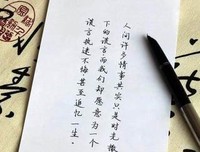 人间许多情事其实只是时光撒
下的谎言而我们却愿意为一个
谎言执迷不悔甚至追忆一生。